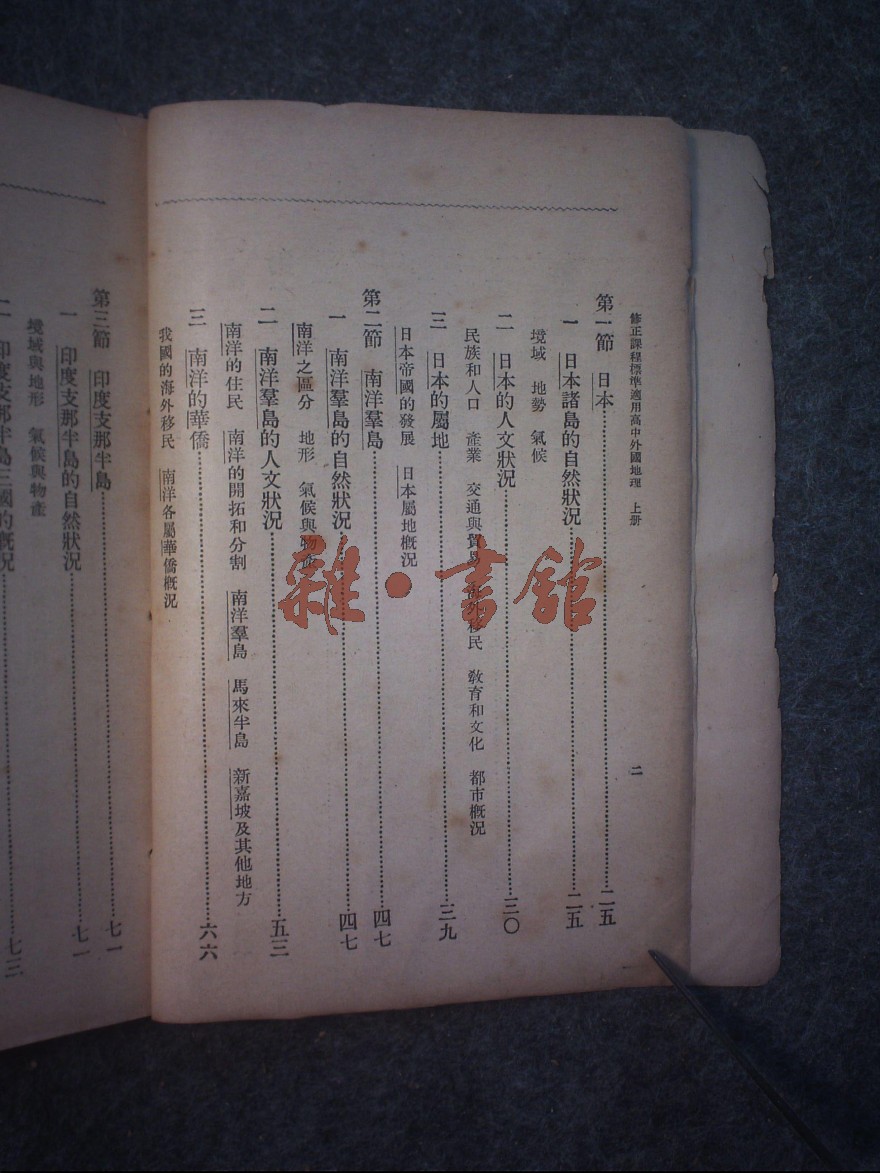 修正課程標準適用高中外國地理　上册
二
第一節　日本……二五
一　日本諸島的自然狀況……二五
境域　地勢　氣候
二　日本的人文狀況……三〇
民族和人口　產業　交通與貿易　海外移民　敎育和文化　都市概況
三　日本的屬地……三九
日本帝國的發展　日本屬地概況
第二節　南洋羣島……四七
一　南洋羣島的自然狀況……四七
南洋之區分　地形　氣候與物產
二　南洋羣島的人文狀況……五三
南洋的住民　南洋的開拓和分割　南洋羣島　馬來半島　新嘉坡及其他地方
三　南洋的華僑……六六
我國的海外移民　南洋各屬華僑概況
第三節　印度支那半島……七一
一　印度支那半島的自然狀況……七一
境域與地形　氣候與物產
二　印度支那半島三國的概況……七三
雜·書館